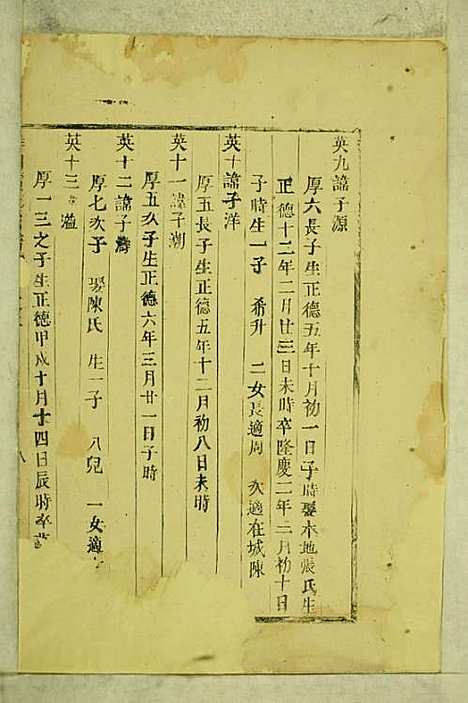 英九諱子源
厚六長子生正德五年十月初一日子時娶木地張氏生
正德十二年二月廿三日未時卒隆慶二年三月初十日
子時生一子 希升 二女長適周 次適在城陳
英十諱子洋
厚五長子生正德五年十二月初八日未時
英十一諱子潮
厚五次子生正德六年三月廿一日子時
英十二諱子濤
厚七次子 娶陳氏 生一子 八兒 一女適
英十三 溢
厚一三之子生正德甲戌十月十四日辰時卒